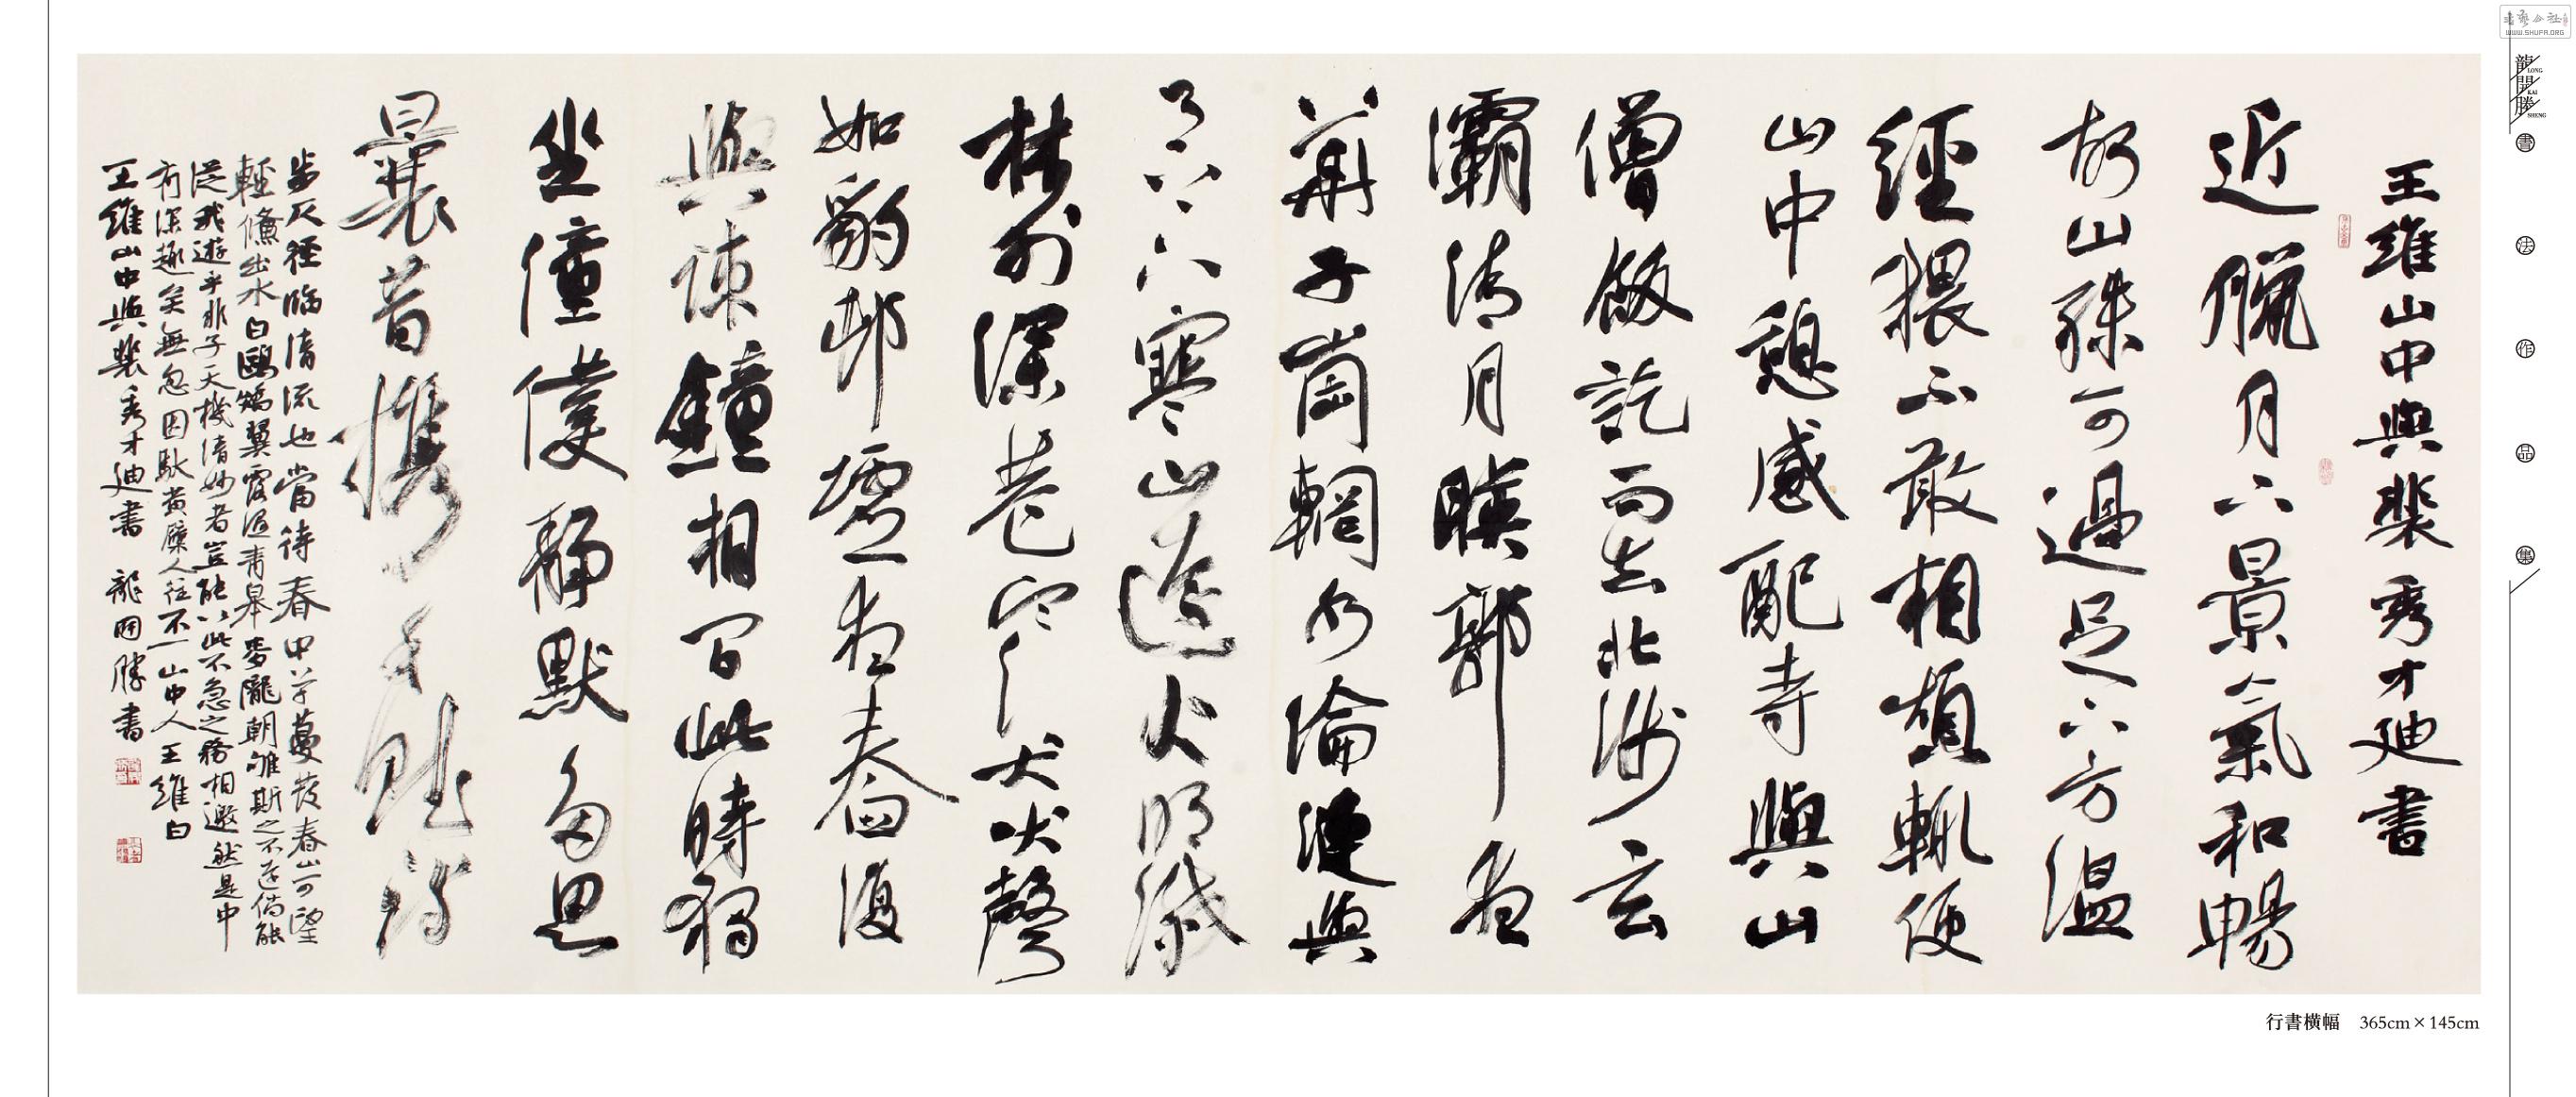 王維山中與裴秀才迪書
近臘月下景氣和暢
故山殊可過足下方溫
經猥不敢相煩輒便
山中憩感配寺與山
僧飯訖而去北涉玄
灞清月映郭夜
華子崗輞水淪漣與
月上下寒山遠火明滅
林外深巷寒犬吠聲
如豹邨墟夜舂復
與疎鐘相間此時獨
坐僮僕靜默多思
曩昔携手賦詩
步仄徑臨清流也當待春中草蔓發春山可望
輕鯈出水白鷗矯翼露濕青皋麥隴朝雊斯之不遠倘能
從我遊乎非子天機清妙者豈能以此不急之務相邀然是中
有深趣矣無忽因馱黃蘗人往不一山中人王維白
王維山中與裴秀才迪書 龍開勝書
行書橫幅 365cm×145cm
龍開勝
LONG KAI SHENG
書法作品集
WWW.SHUFA.ORG